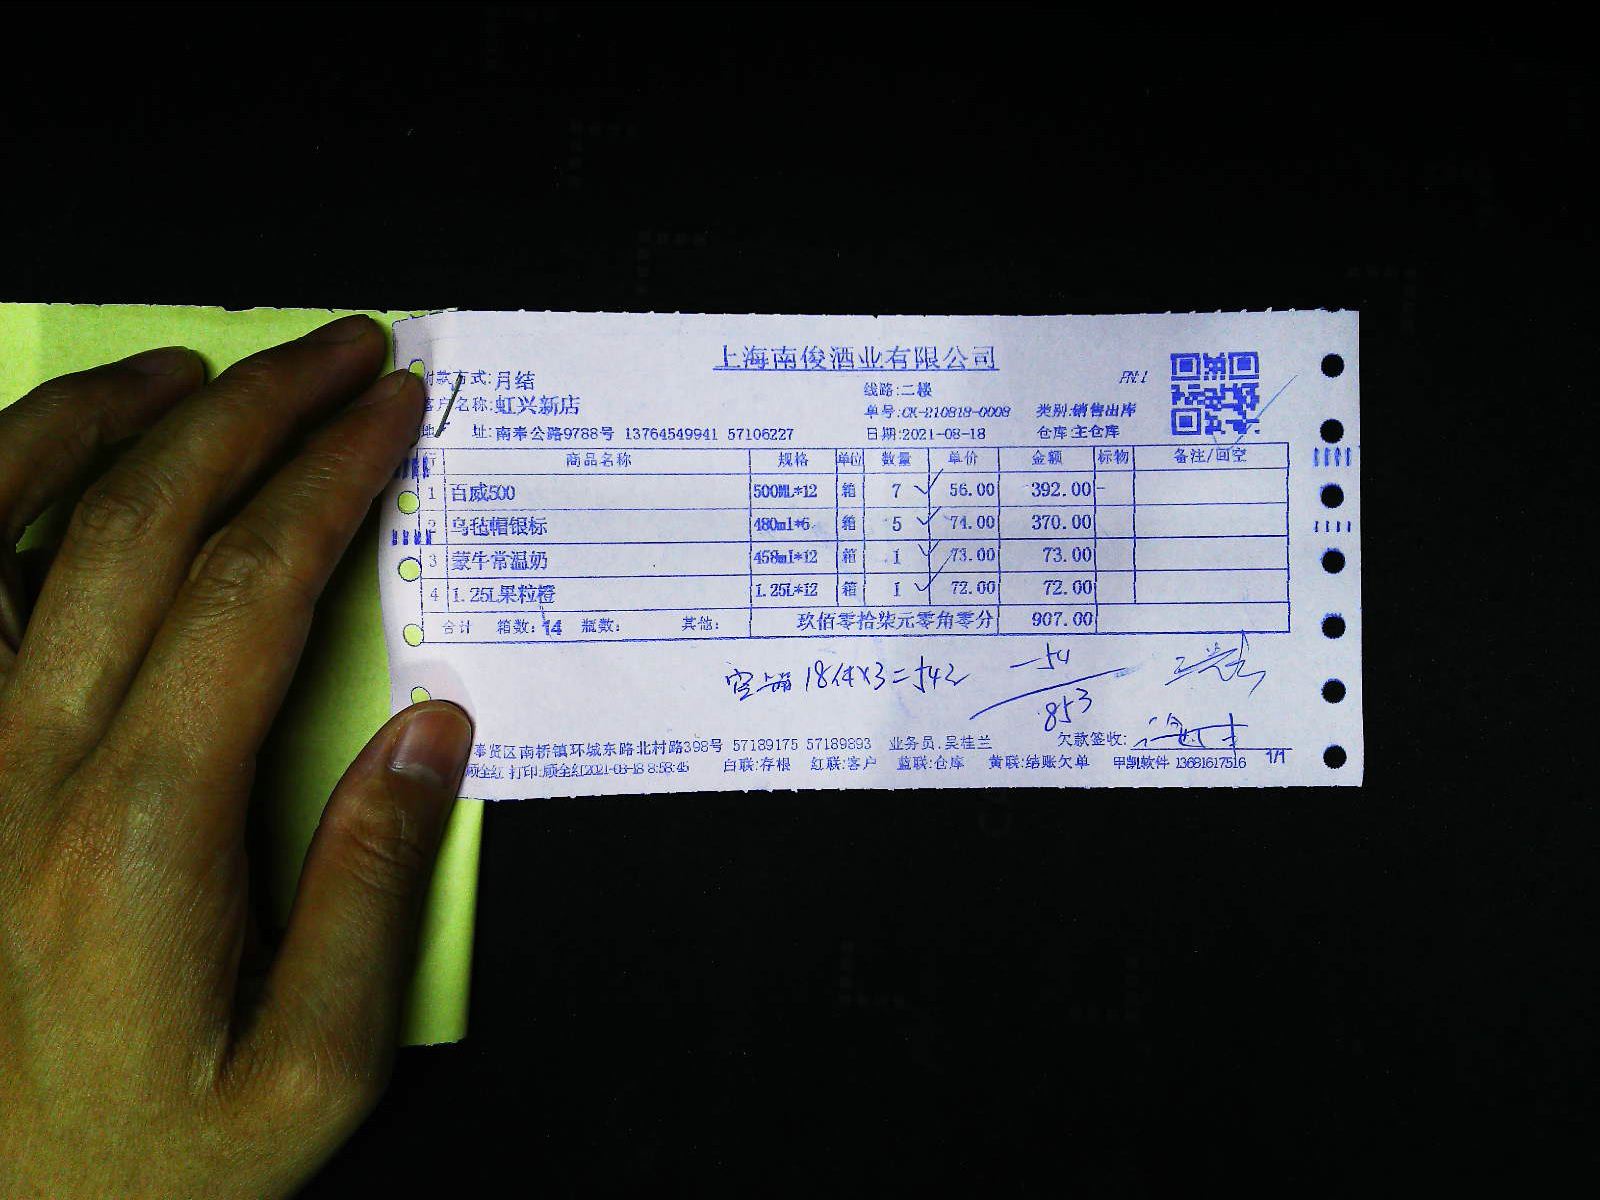 上海南俊酒业有限公司
付款方式:月结 线路:二楼
客户名称:虹兴新店 单号:CK-210818-0008 类别:销售出库
地 址:南奉公路9788号 13764549941 57106227 日期:2021-08-18 仓库:主仓库
行 商品名称 规格 单位 数量 单价 金额 标物 备注/回空
1 百威500 500ML*12 箱 7 56.00 392.00 -
2 乌毡帽银标 480ml*6 箱 5 74.00 370.00
3 蒙牛常温奶 458ml*12 箱 1 73.00 73.00
4 1.25L果粒橙 1.25L*12 箱 1 72.00 72.00
合计 箱数: 14 瓶数: 其他: 玖佰零拾柒元零角零分 907.00
18件×3=54元 -54
853
奉贤区南桥镇环城东路北村路398号 57189175 57189893 业务员:吴桂兰 欠款签收:
顾全红 打印:顾全红2021-08-18 8:58:45 白联:存根 红联:客户 蓝联:仓库 黄联:结账欠单 甲凯软件 13681617516 1/1